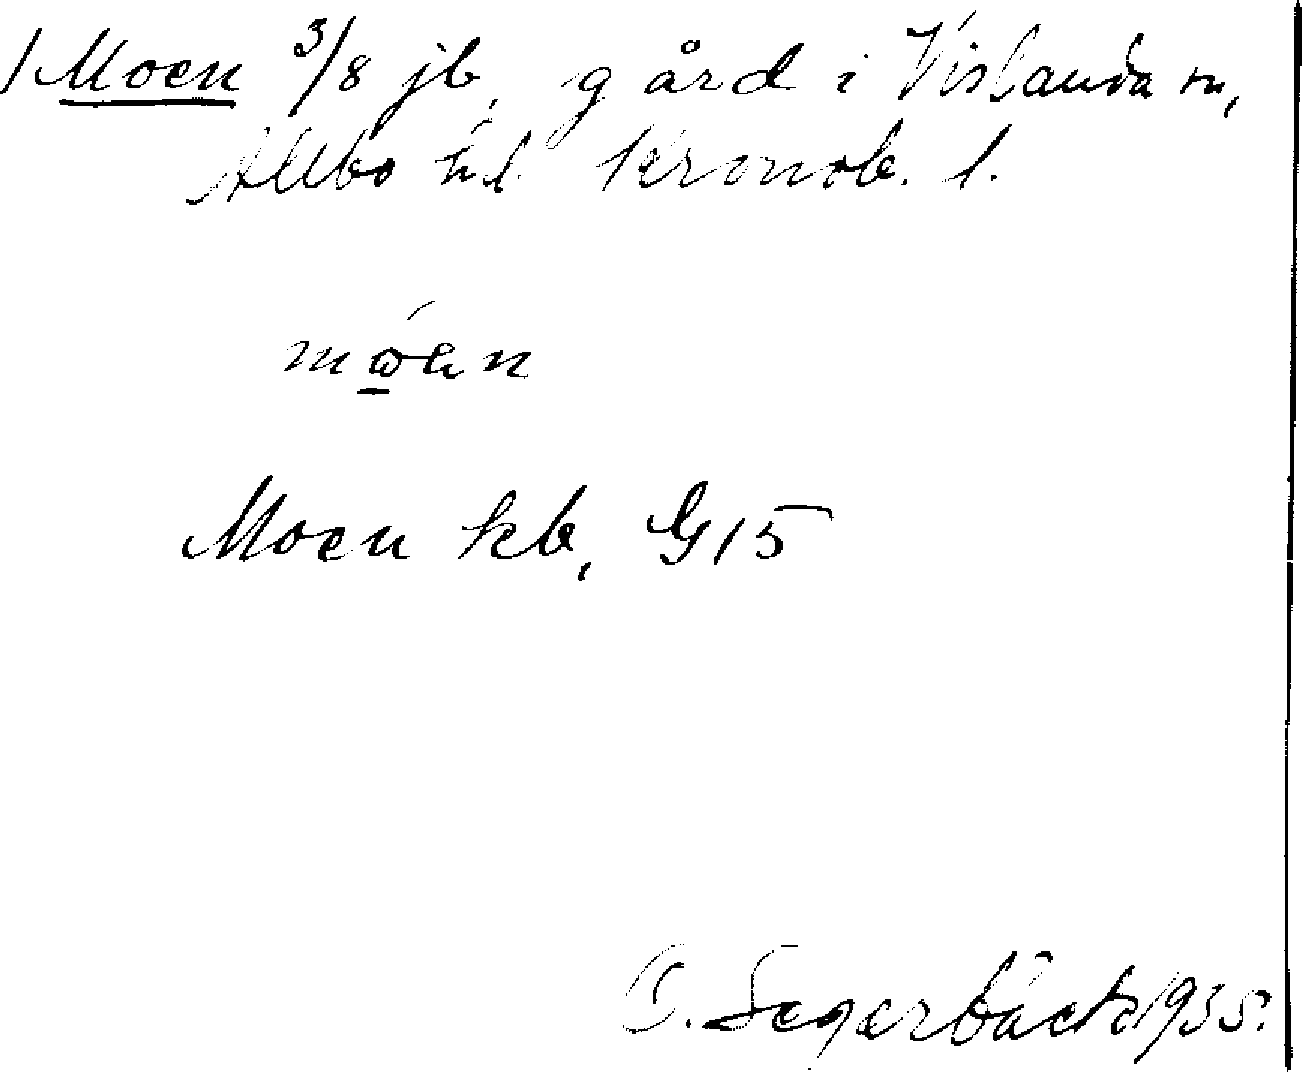 /Moen 3/8 jb, gård i Vislanda sn,
Allbo hd. Kronob. l.
Moen kb, G15
C. Segerbäck 1935.